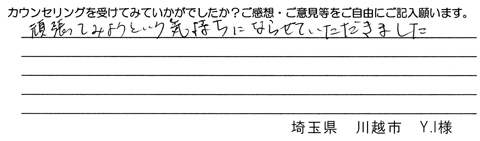 カウンセリングを受けてみていかがでしたか？ご感想・ご意見等をご自由にご記入願います。
頑張ってみようという気持ちにならせていただきました
埼玉県　川越市　Y.I様